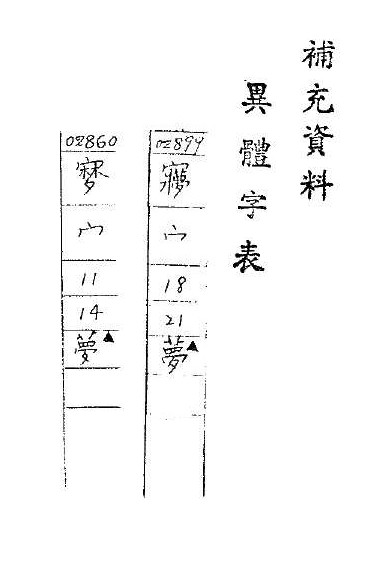 補充資料
異體字表
02899
宀
18
21
夢▲
02860
宀
11
14
夢▲